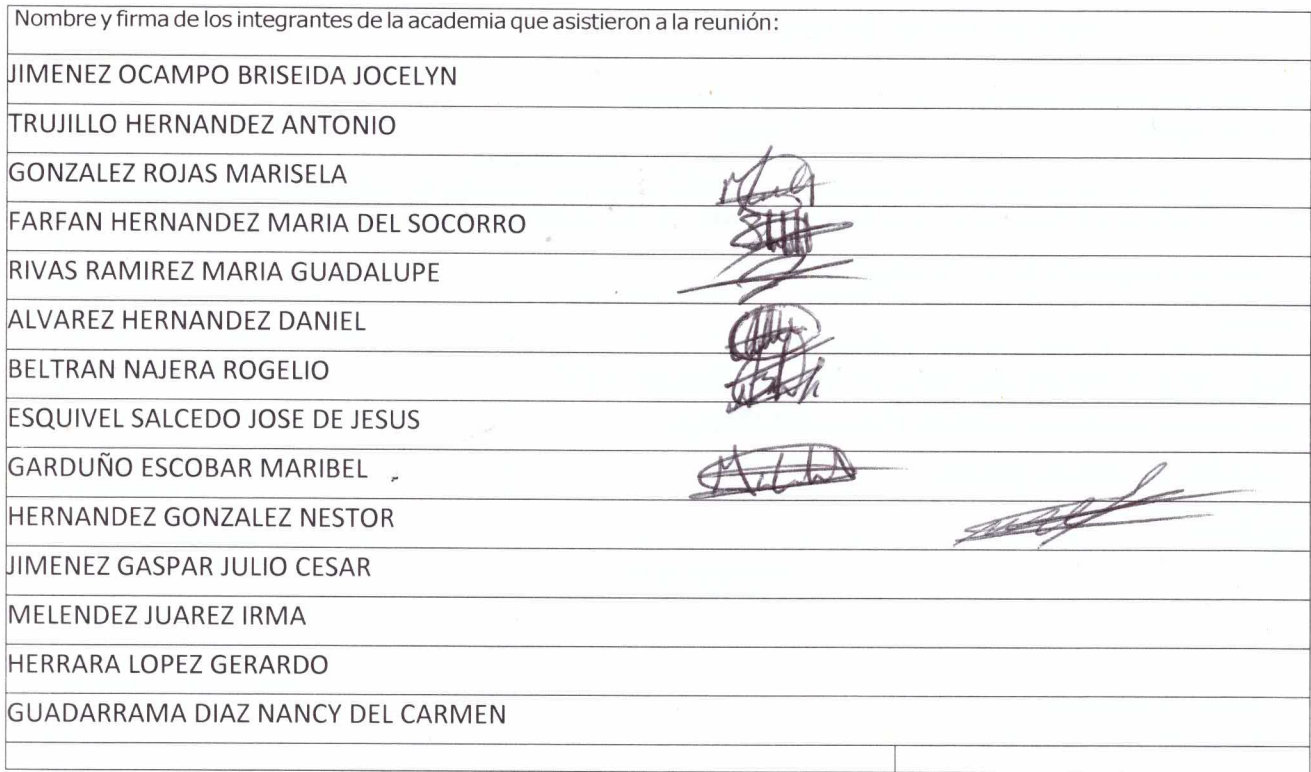 Nombre y firma de los integrantes de la academia que asistieron a la reunión:
JIMENEZ OCAMPO BRISEIDA JOCELYN
TRUJILLO HERNANDEZ ANTONIO
GONZALEZ ROJAS MARISELA
FARFAN HERNANDEZ MARIA DEL SOCORRO
RIVAS RAMIREZ MARIA GUADALUPE
ALVAREZ HERNANDEZ DANIEL
BELTRAN NAJERA ROGELIO
ESQUIVEL SALCEDO JOSE DE JESUS
GARDUÑO ESCOBAR MARIBEL
HERNANDEZ GONZALEZ NESTOR
JIMENEZ GASPAR JULIO CESAR
MELENDEZ JUAREZ IRMA
HERRARA LOPEZ GERARDO
GUADARRAMA DIAZ NANCY DEL CARMEN